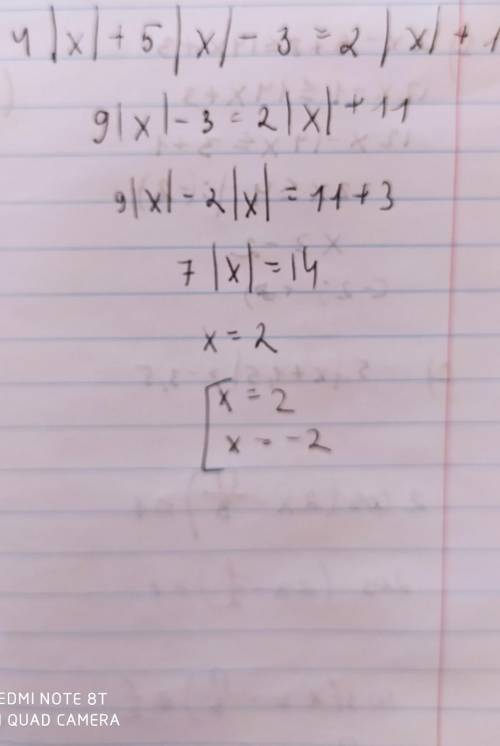 4|x| + 5|x| - 3 = 2|x| + 1
9|x| - 3 = 2|x| + 11
9|x| - 2|x| = 11 + 3
7|x| = 14
x = 2
[x = 2
x = -2
EDMI NOTE 8T
I QUAD CAMERA